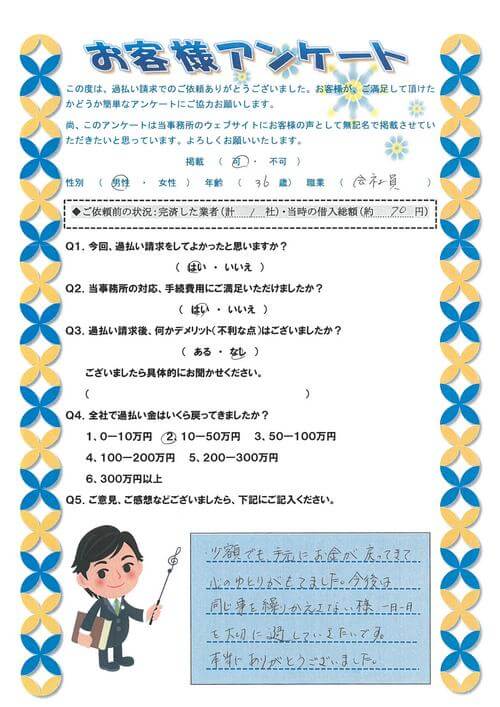 お客様アンケート
この度は、過払い請求でのご依頼ありがとうございました。お客様が、ご満足して頂けた
かどうか簡単なアンケートにご協力お願いします。
尚、このアンケートは当事務所のウェブサイトにお客様の声として無記名で掲載させてい
ただきたいと思っています。よろしくお願いいたします。
掲載 ( 可 ・ 不可 )
性別 ( 男性 ・ 女性 ) 年齢 ( 36 歳) 職業 ( 会社員 )
◆ご依頼前の状況:完済した業者(計 1 社)・当時の借入総額(約 70 円)
Q1. 今回、過払い請求をしてよかったと思いますか?
( はい ・ いいえ )
Q2. 当事務所の対応、手続費用にご満足いただけましたか?
( はい ・ いいえ )
Q3. 過払い請求後、何かデメリット(不利な点)はございましたか?
( ある ・ なし )
ございましたら具体的にお聞かせください。
( )
Q4. 全社で過払い金はいくら戻ってきましたか?
1、0ー10万円 2、10ー50万円 3、50ー100万円
4、100ー200万円 5、200ー300万円
6、300万円以上
Q5. ご意見、ご感想などございましたら、下記にご記入ください。
少額でも手元にお金が戻ってきて
心のゆとりがもてました。今後は
同じ事を繰りかえさない様一日一日
を大切に過していきたいです。
本当にありがとうございました。